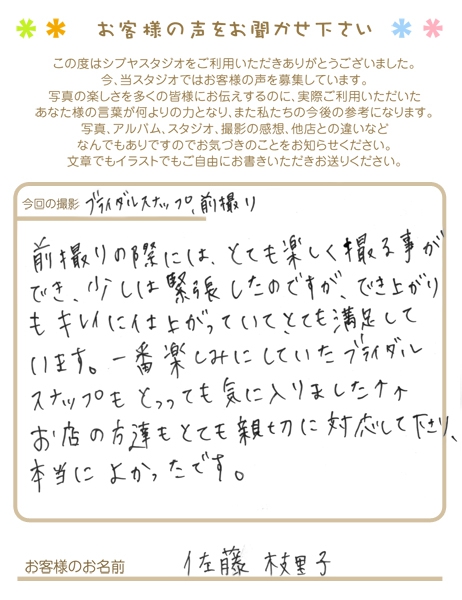 お客様の声をお聞かせ下さい
この度はシブヤスタジオをご利用いただきありがとうございました。
今、当スタジオではお客様の声を募集しています。
写真の楽しさを多くの皆様にお伝えするのに、実際ご利用いただいた
あなた様の言葉が何よりの力となり、また私たちの今後の参考になります。
写真、アルバム、スタジオ、撮影の感想、他店との違いなど
なんでもありですのでお気づきのことをお知らせください。
文章でもイラストでもご自由にお書きいただきお送りください。
今回の撮影 ブライダルスナップ、前撮り
前撮りの際には、とても楽しく撮る事が
でき、少しは緊張したのですが、でき上がり
もキレイに仕上がっていてとても満足して
います。一番楽しみにしていたブライダル
スナップもとっっても気に入りました↑↑
お店の方達もとても親切に対応して下さり、
本当によかったです。
お客様のお名前 佐藤 枝里子